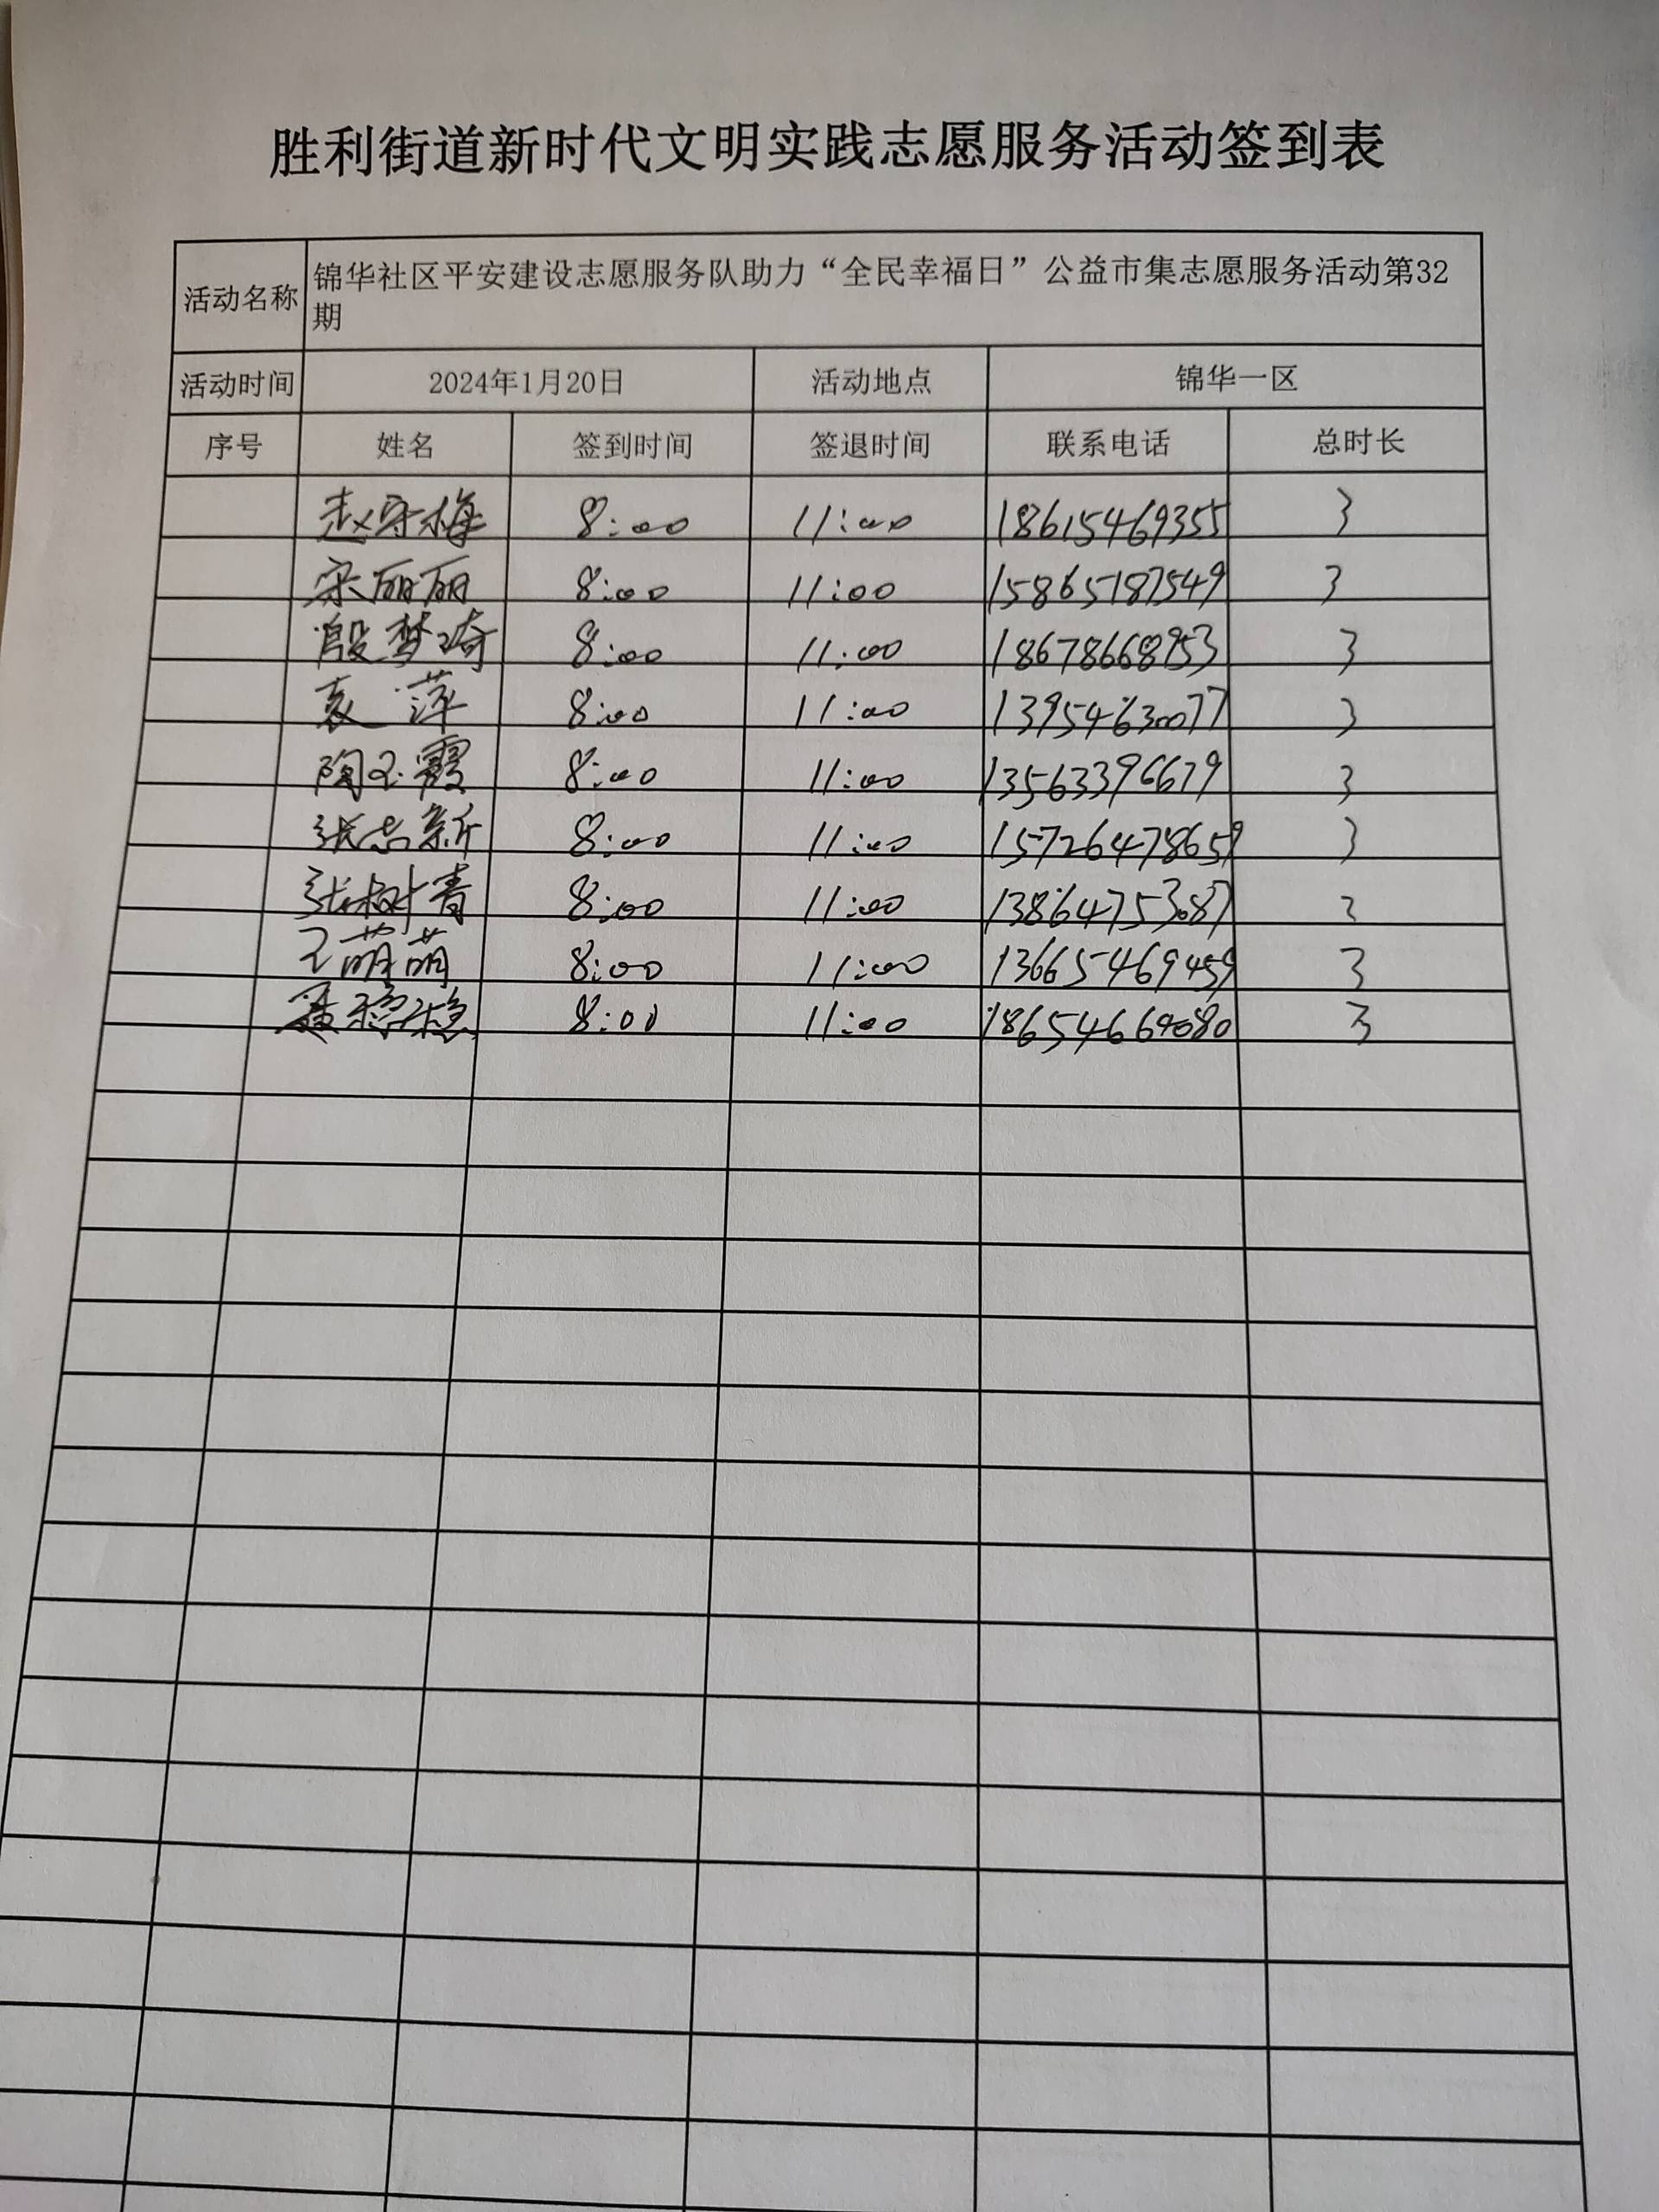 胜利街道新时代文明实践志愿服务活动签到表
活动名称 锦华社区平安建设志愿服务队助力“全民幸福日”公益市集志愿服务活动第32
期
活动时间 2024年1月20日 活动地点 锦华一区
序号 姓名 签到时间 签退时间 联系电话 总时长
赵守梅 8:00 11:00 18615469355 3
宋丽丽 8:00 11:00 15865187549 3
殷梦琦 8:00 11:00 18678668953 3
袁萍 8:00 11:00 13954630077 3
陶玉霞 8:00 11:00 13563396679 3
张志新 8:00 11:00 15726478659 3
张树青 8:00 11:00 13864753087 3
王萌萌 8:00 11:00 13665469459 3
聂稳稳 8:00 11:00 3